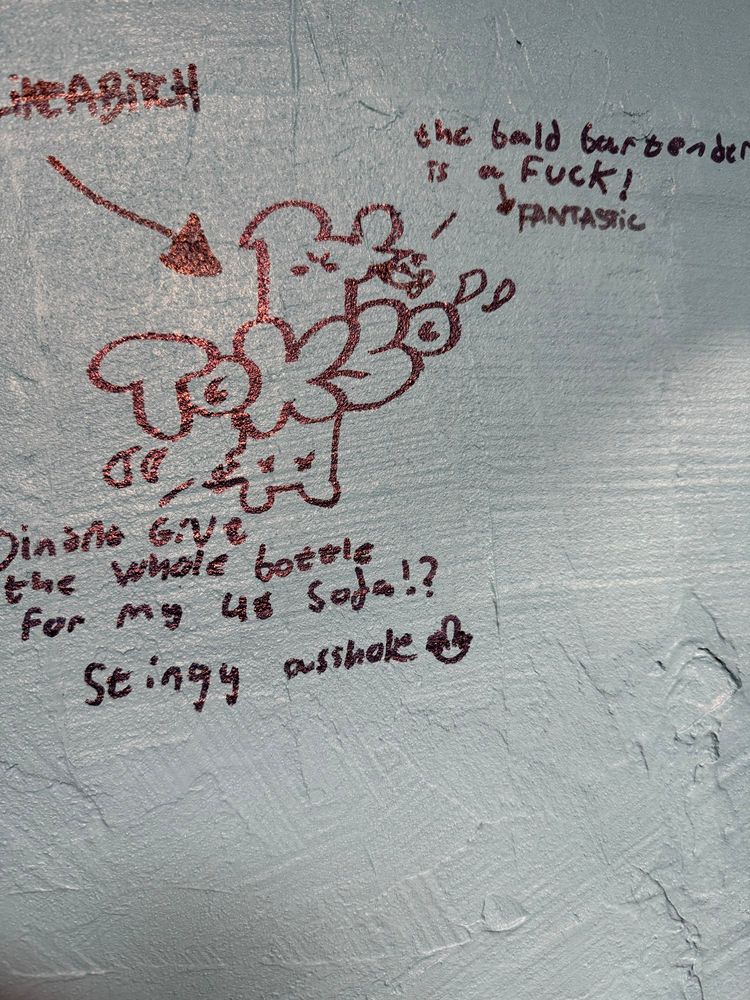 LIKEABITCH
the bald bartender
is a FUCK!
FANTASTIC
Dinano GiVe
the whole bottle
for my 4$ Soda!?
Stingy asshole